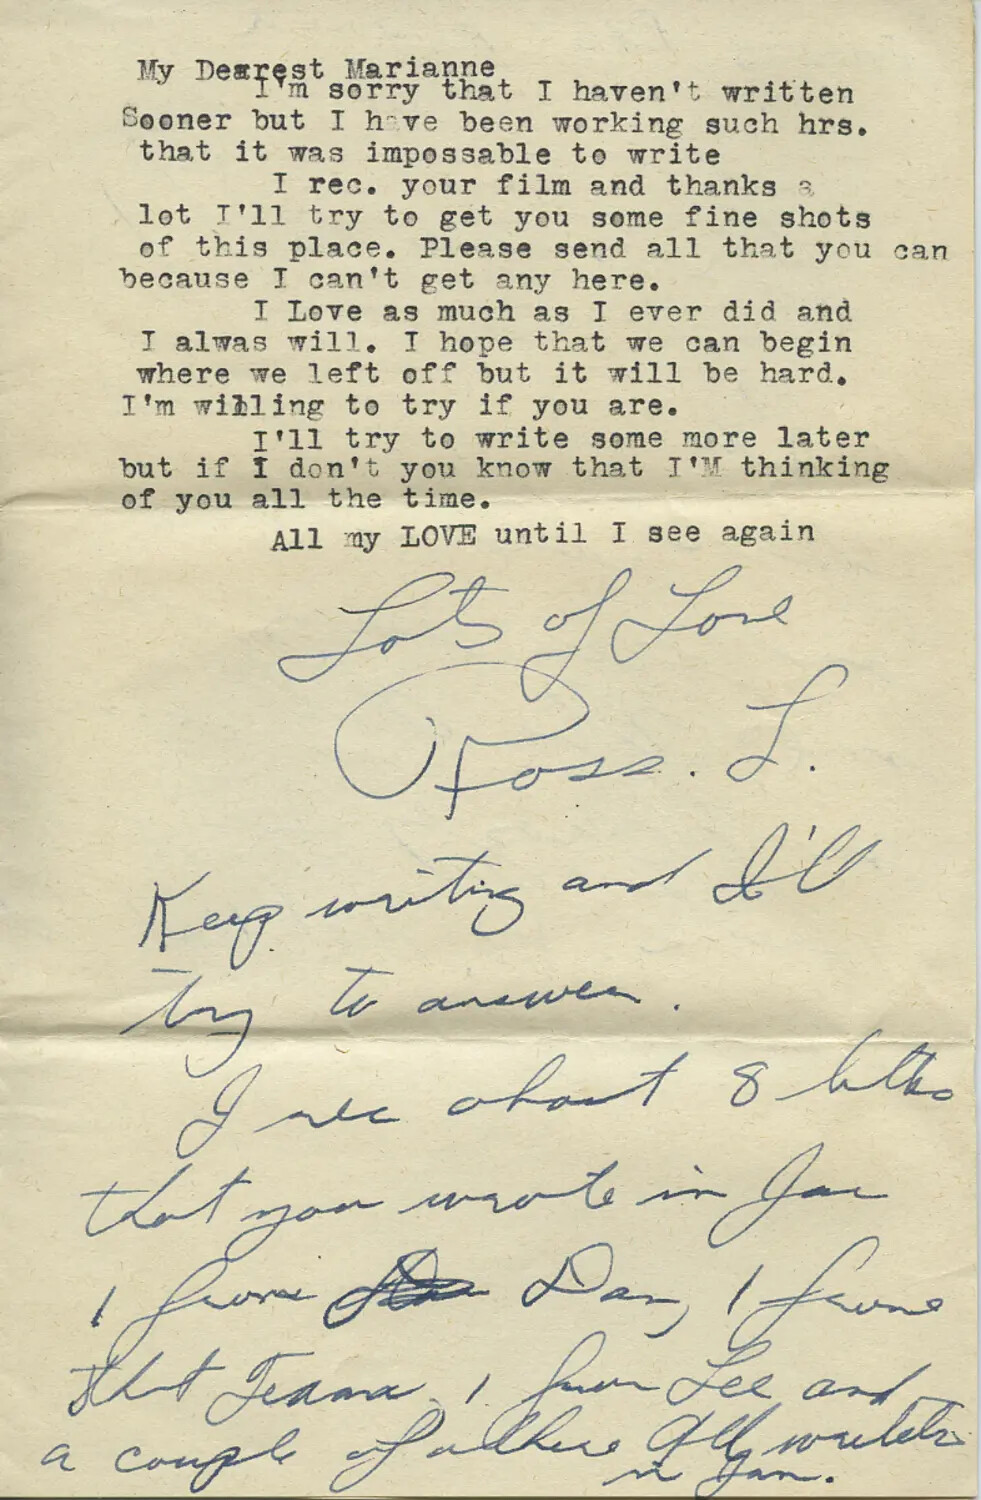 My Dearest Marianne
I'm sorry that I haven't written
Sooner but I have been working such hrs.
that it was impossable to write
I rec. your film and thanks a
lot I'll try to get you some fine shots
of this place. Please send all that you can
because I can't get any here.
I Love as much as I ever did and
I alwas will. I hope that we can begin
where we left off but it will be hard.
I'm willing to try if you are.
I'll try to write some more later
but if I don't you know that I'M thinking
of you all the time.
All my LOVE until I see again
Lots of Love
Ross. L.
Keep writing and I'll
try to answer.
I rec about 8 letters
that you wrote in Jan
1 from Dan, 1 from
that 1 from Lee and
a couple of others All
in Jan.